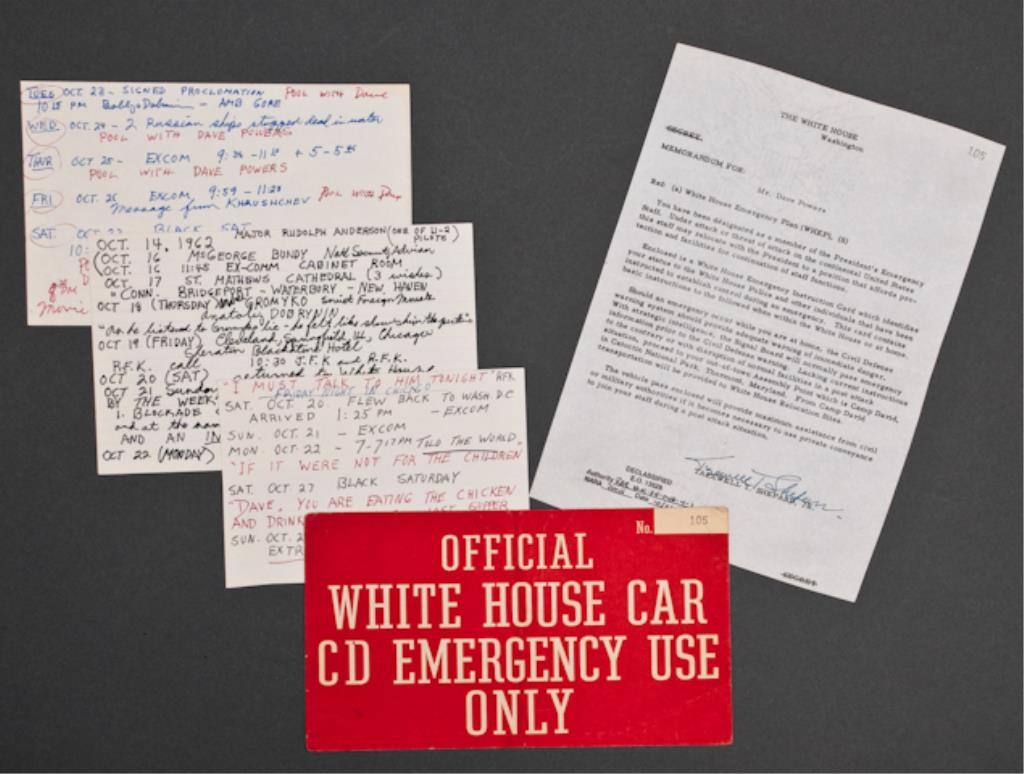 TUES OCT 23 - SIGNED PROCLOMATION POOL WITH Dave
10:15 PM Bobby - AMB GORE
WED. OCT. 24 - 2 Russian ships stopped dead in water
POOL WITH DAVE POWERS
THUR OCT 25 - EXCOM + 5-5
POOL WITH DAVE POWERS
FRI OCT. 26 EXCOM 9:59 - 11:20 Pool With
Message from KHRUSHCHEV
SAT. BLACK SAT
10:
Movie
OCT. 14, 1962 MAJOR RUDOLPH ANDERSON (ONE OF U-2 PILOTS)
OCT. 16 McGEORGE BUNDY Natl Security Advisor
OCT. 16 11:45 EX-COMM CABINET ROOM
OCT. 17 ST. MATHEWS CATHEDRAL (3 wishes)
" CONN. BRIDGEPORT - WATERBURY - NEW HAVEN
OCT 18 (THURSDAY) GROMYKO Soviet Foreign
Anatoly DOBRYNIN
"As he listened to Gromyko lie - he felt like
OCT 19 (FRIDAY) Cleveland, Springfield Ill, Chicago
Sheraton Blackstone Hotel
R.F.K. call 10:30 J.F.K and R.F.K.
OCT 20 (SAT) returned to White House
OCT 21 Sunday
BY THE WEEK
1. BLOCKADE
and at the
AND AN IN
OCT 22 (MONDAY)
"I MUST TALK TO HIM TONIGHT" RFK
FRIDAY NIGHT IN CHICAGO
SAT. OCT. 20 FLEW BACK TO WASH. DC
ARRIVED 1:25 PM - EXCOM
SUN. OCT. 21 - EXCOM
MON. OCT. 22 - 7-7:17 PM TOLD THE WORLD
"IF IT WERE NOT FOR THE CHILDREN
SAT. OCT 27 BLACK SATURDAY
"DAVE, YOU ARE EATING THE CHICKEN
AND DRINK LAST SUPPER
SUN. OCT. 2
EXTR
THE WHITE HOUSE
Washington
105
SECRET
MEMORANDUM FOR:
Mr. Dave Powers
Ref: (a) White House Emergency Plan (WHEP), (S)
You have been designated as a member of the President's Emergency
Staff. Under attack or threat of attack on the continental United States
this staff may relocate with the President to a position that affords pro-
tection and facilities for continuation of staff functions.
Enclosed is a White House Emergency Instruction Card which identifies
your status to the White House Police and other individuals that have been
instructed to establish control during an emergency. This card contains
basic instructions to be followed when within the White House or at home.
Should an emergency occur while you are at home, the Civil Defense
warning system should provide adequate warning of immediate danger.
With strategic intelligence, the Signal Board will normally pass emergency
information prior to the Civil Defense warning. Lacking current instructions
to the contrary or with disruption of normal facilities in a post attack
situation, proceed to your out-of-town Assembly Point which is Camp David,
in Catoctin National Park, Thurmont, Maryland. From Camp David,
transportation will be provided to White House Relocation Sites.
The vehicle pass enclosed will provide maximum assistance from civil
or military authorities if it becomes necessary to use private conveyance
to join your staff during a post attack situation.
TAZEWELL T. SHEPARD, JR.
DECLASSIFIED
E.O. 13526
Authority
NARA Date
SECRET
No. 105
OFFICIAL
WHITE HOUSE CAR
CD EMERGENCY USE
ONLY